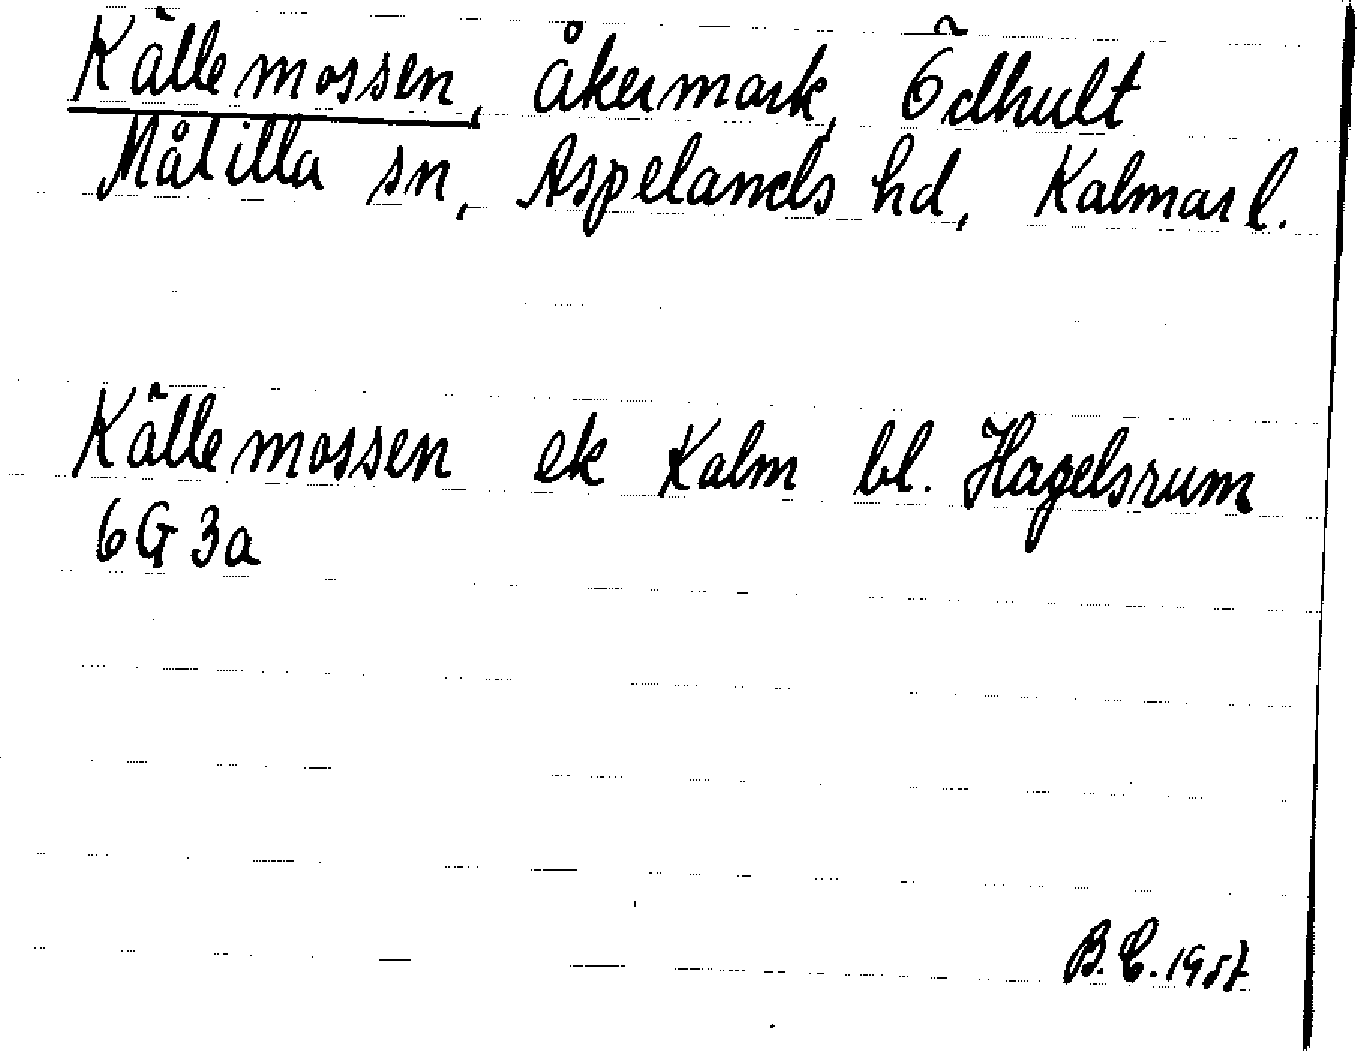 Källemossen, åkermark, Ödhult
Målilla sn, Aspelands hd, Kalmar l.
Källemossen ek Kalm bl. Hagelsrum
6G3a
B.C. 1957